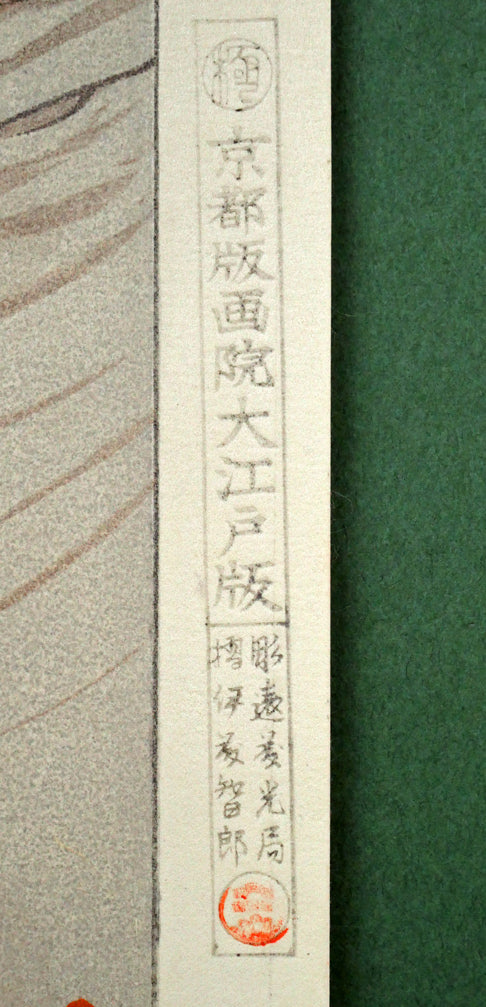 極
京都版画院大江戸版
彫遠藤光局
摺伊藤智郎